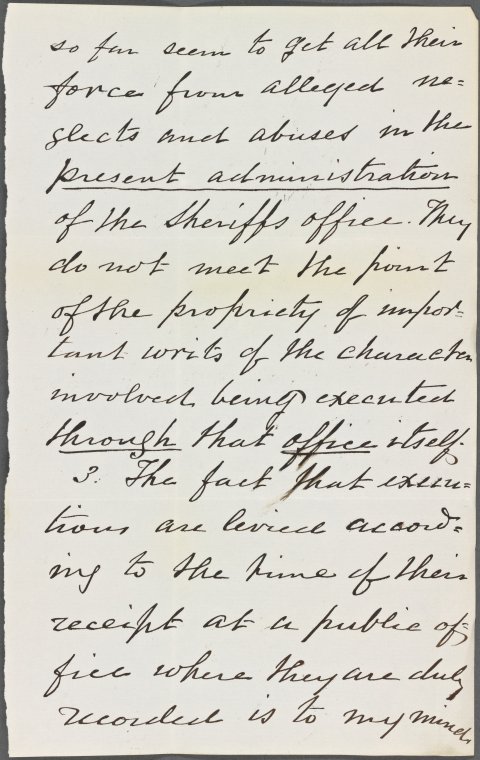 so far seem to get all their
force from alleged ne=
glects and abuses in the
present administration
of the Sheriffs office. They
do not meet the point
of the propriety of impor=
tant writs of the character
involved being executed
through that office itself.
3. The fact that execu=
tions are levied accord=
ing to the time of their
receipt at a public of=
fice where they are duly
recorded is to my mind